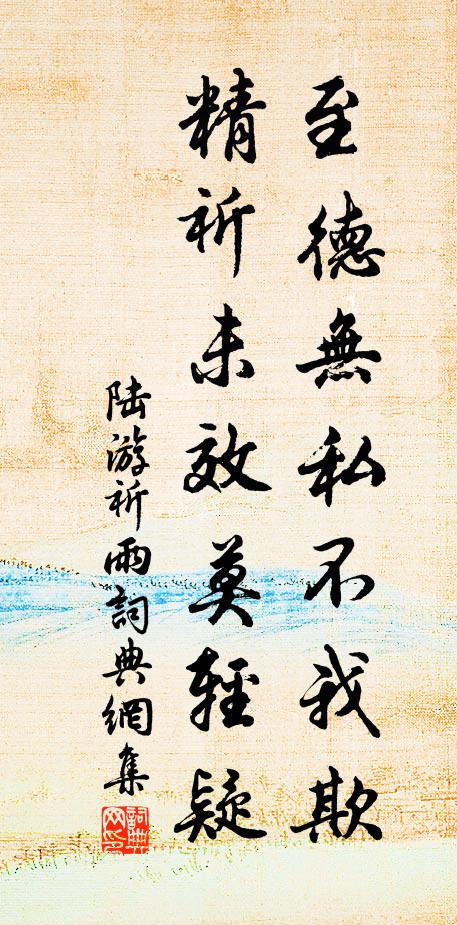 至德無私不我欺
精祈未效莫輕疑
陸游祈雨詞典網集
詞典網印